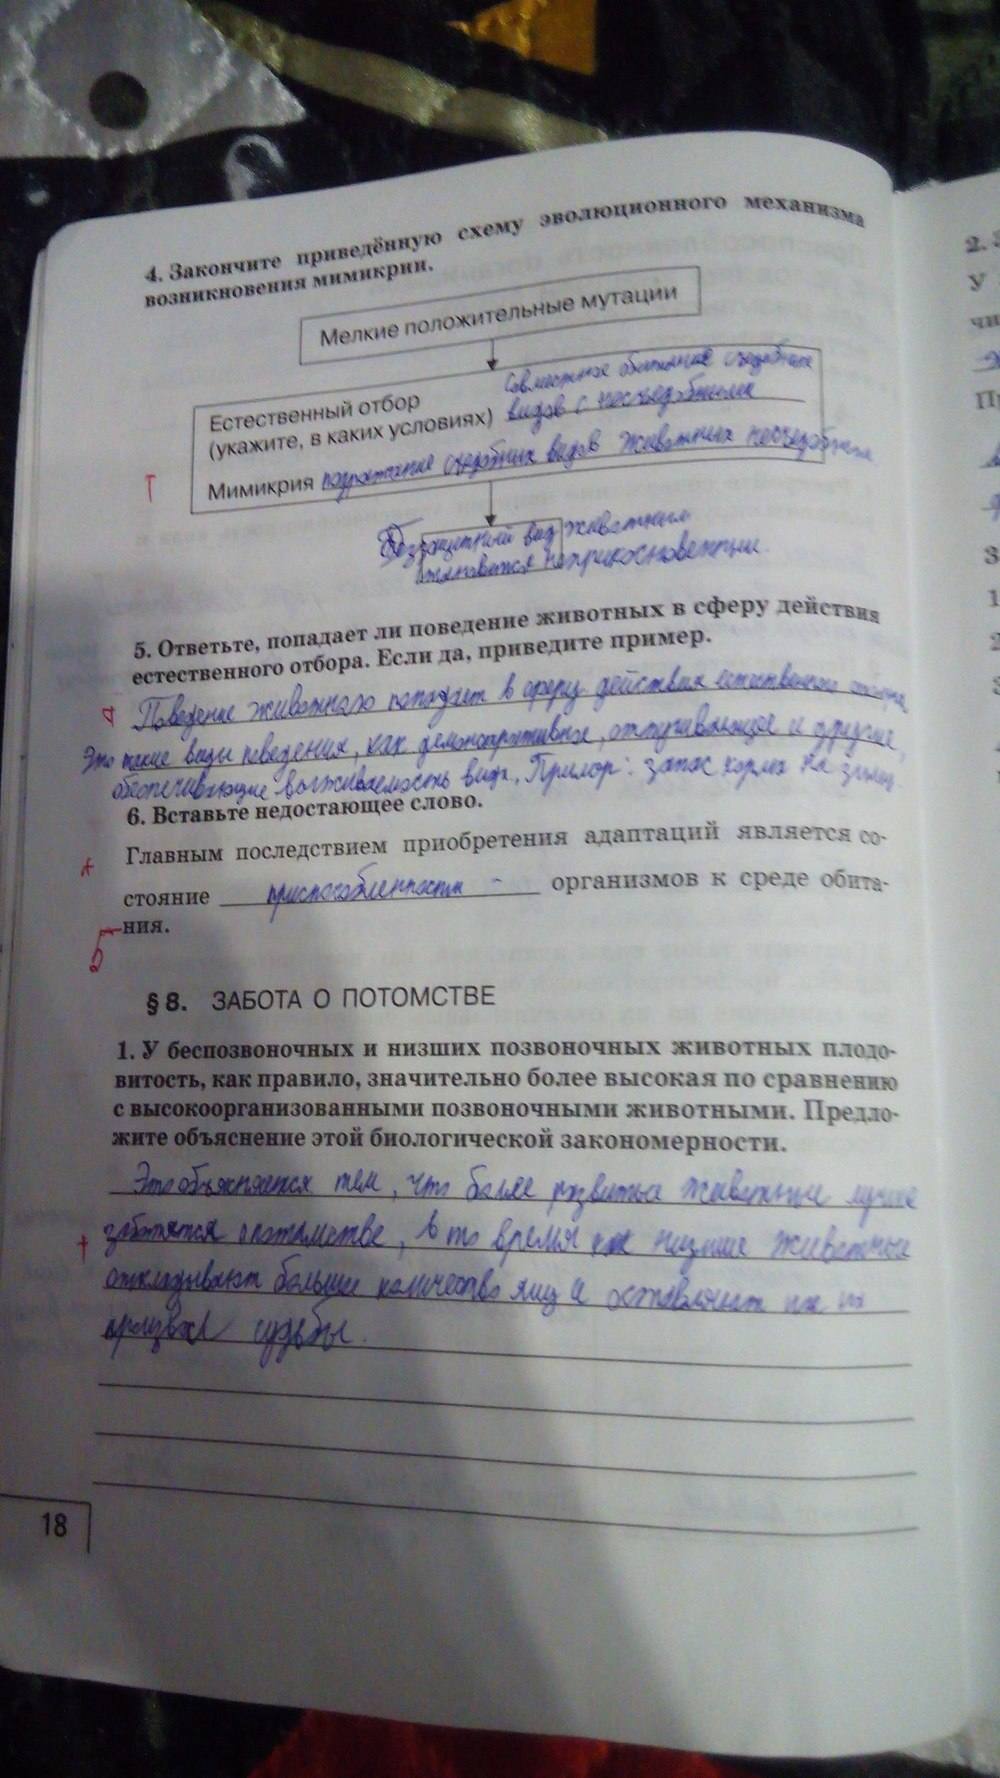 4. Закончите приведённую схему эволюционного механизма
возникновения мимикрии.
Мелкие положительные мутации
Естественный отбор
(укажите, в каких условиях)
Совместное обитание съедобных
видов с несъедобными
Мимикрия подражание съедобных видов животных несъедобным
Беззащитный вид животных
становится неприкосновенным.
5. Ответьте, попадает ли поведение животных в сферу действия
естественного отбора. Если да, приведите пример.
Поведение животного попадает в сферу действия естественного отбора
Это такие виды поведения, как демонстративное, отпугивающее и другие,
обеспечивающие выживаемость вида. Пример: запас корма на зиму
6. Вставьте недостающее слово.
Главным последствием приобретения адаптаций является со-
стояние приспособленности организмов к среде обита-
ния.
5
§ 8. ЗАБОТА О ПОТОМСТВЕ
1. У беспозвоночных и низших позвоночных животных плодо-
витость, как правило, значительно более высокая по сравнению
с высокоорганизованными позвоночными животными. Предло-
жите объяснение этой биологической закономерности.
Это объясняется тем, что более развитые животные лучше
заботятся о потомстве, в то время как низшие животные
откладывают больше количество яиц и оставляют их на
произвол судьбы.
18
2.
У
чи
3
1
2